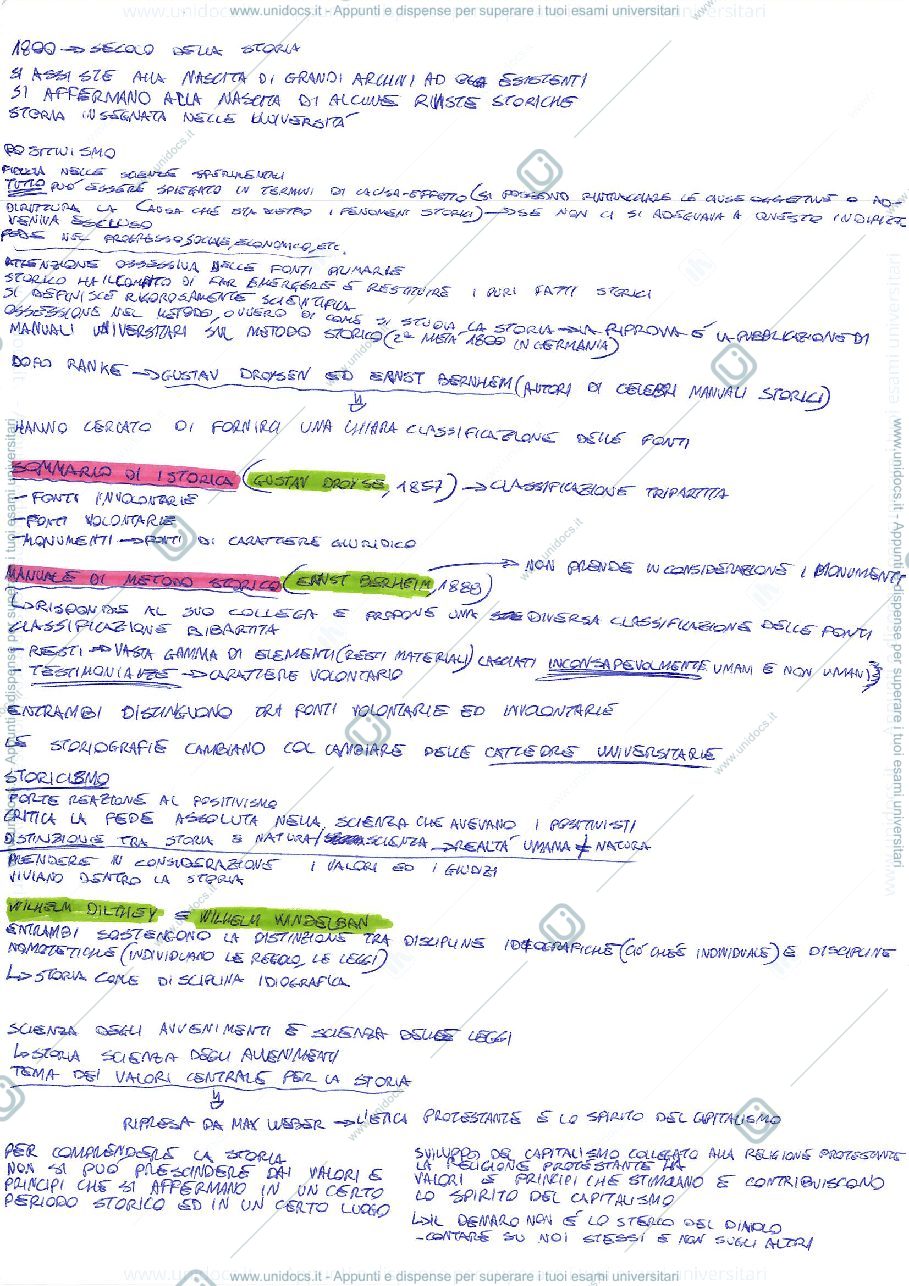 www.unidocs.it - Appunti e dispense per superare i tuoi esami universitari
1800 → SECOLO DELLA STORIA
SI ASSISTE ALLA NASCITA DI GRANDI ARCHIVI AD OGGI ESISTENTI
SI AFFERMANO ALLA NASCITA DI ALCUNE RIVISTE STORICHE
STORIA INSEGNATA NELLE UNIVERSITÀ
POSITIVISMO
FIDUCIA NELLE SCIENZE SPERIMENTALI
TUTTO PUÒ ESSERE SPIEGATO IN TERMINI DI CAUSA-EFFETTO (SI POSSONO RINTRACCIARE LE CAUSE OGGETTIVE O AD-
DIRITTURA LA CAUSA CHE STA DIETRO I FENOMENI STORICI) → SE NON CI SI ADEGUAVA A QUESTO INDIRIZZO
VENIVA ESCLUSO
FEDE NEL PROGRESSO SOCIALE, ECONOMICO, ETC.
ATTENZIONE OSSESSIVA DELLE FONTI PRIMARIE
STORICO HA IL COMPITO DI FAR EMERGERE E RESTITUIRE I PURI FATTI STORICI
SI DEFINISCE RIGOROSAMENTE SCIENTIFICA
OSSESSIONE NEL METODO, OVVERO DI COME SI STUDIA LA STORIA → LA RIPROVA È LA PUBBLICAZIONE DI
MANUALI UNIVERSITARI SUL METODO STORICO (2ª METÀ 1800 IN GERMANIA)
DOPO RANKE → GUSTAV DROYSEN ED ERNST BERNHEIM (AUTORI DI CELEBRI MANUALI STORICI)
HANNO CERCATO DI FORNIRCI UNA CHIARA CLASSIFICAZIONE DELLE FONTI
SOMMARIO DI ISTORICA (GUSTAV DROYSE, 1857) → CLASSIFICAZIONE TRIPARTITA
- FONTI INVOLONTARIE
- FONTI VOLONTARIE
- MONUMENTI → FONTI DI CARATTERE GIURIDICO
MANUALE DI METODO STORICO (ERNST BERHEIM, 1888) → NON PRENDE IN CONSIDERAZIONE I MONUMENTI
↳ RISPONDE AL SUO COLLEGA E PROPONE UNA DIVERSA CLASSIFICAZIONE DELLE FONTI
CLASSIFICAZIONE BIBARTITA
- RESTI → VASTA GAMMA DI ELEMENTI (RESTI MATERIALI) LASCIATI INCONSAPEVOLMENTE UMANI E NON UMANI
- TESTIMONIANZE → CARATTERE VOLONTARIO
ENTRAMBI DISTINGUONO TRA FONTI VOLONTARIE ED INVOLONTARIE
LE STORIOGRAFIE CAMBIANO COL CAMBIARE DELLE CATTEDRE UNIVERSITARIE
STORICISMO
FORTE REAZIONE AL POSITIVISMO
CRITICA LA FEDE ASSOLUTA NELLA SCIENZA CHE AVEVANO I POSITIVISTI
DISTINZIONE TRA STORIA E NATURA/SCIENZA → REALTÀ UMANA ≠ NATURA
PRENDERE IN CONSIDERAZIONE I VALORI ED I GIUDIZI
VIVIAMO DENTRO LA STORIA
WILHELM DILTHEY E WILHELM WINDELBAN
ENTRAMBI SOSTENGONO LA DISTINZIONE TRA DISCIPLINE IDIOGRAFICHE (CIÒ CHE È INDIVIDUALE) E DISCIPLINE
NOMOTETICHE (INDIVIDUANO LE REGOLE, LE LEGGI)
↳ STORIA COME DISCIPLINA IDIOGRAFICA
SCIENZA DEGLI AVVENIMENTI E SCIENZA DELLE LEGGI
↳ STORIA SCIENZA DEGLI AVVENIMENTI
TEMA DEI VALORI CENTRALE PER LA STORIA
RIPRESA DA MAX WEBER → L'ETICA PROTESTANTE E LO SPIRITO DEL CAPITALISMO
PER COMPRENDERE LA STORIA
NON SI PUÒ PRESCINDERE DAI VALORI E
PRINCIPI CHE SI AFFERMANO IN UN CERTO
PERIODO STORICO ED IN UN CERTO LUOGO
SVILUPPO DEL CAPITALISMO COLLEGATO ALLA RELIGIONE PROTESTANTE
LA RELIGIONE PROTESTANTE HA
VALORI E PRINCIPI CHE STIMOLANO E CONTRIBUISCONO
LO SPIRITO DEL CAPITALISMO
↳ IL DENARO NON È LO STERCO DEL DIAVOLO
- CONTARE SU NOI STESSI E NON SUGLI ALTRI
www.unidocs.it - Appunti e dispense per superare i tuoi esami universitari